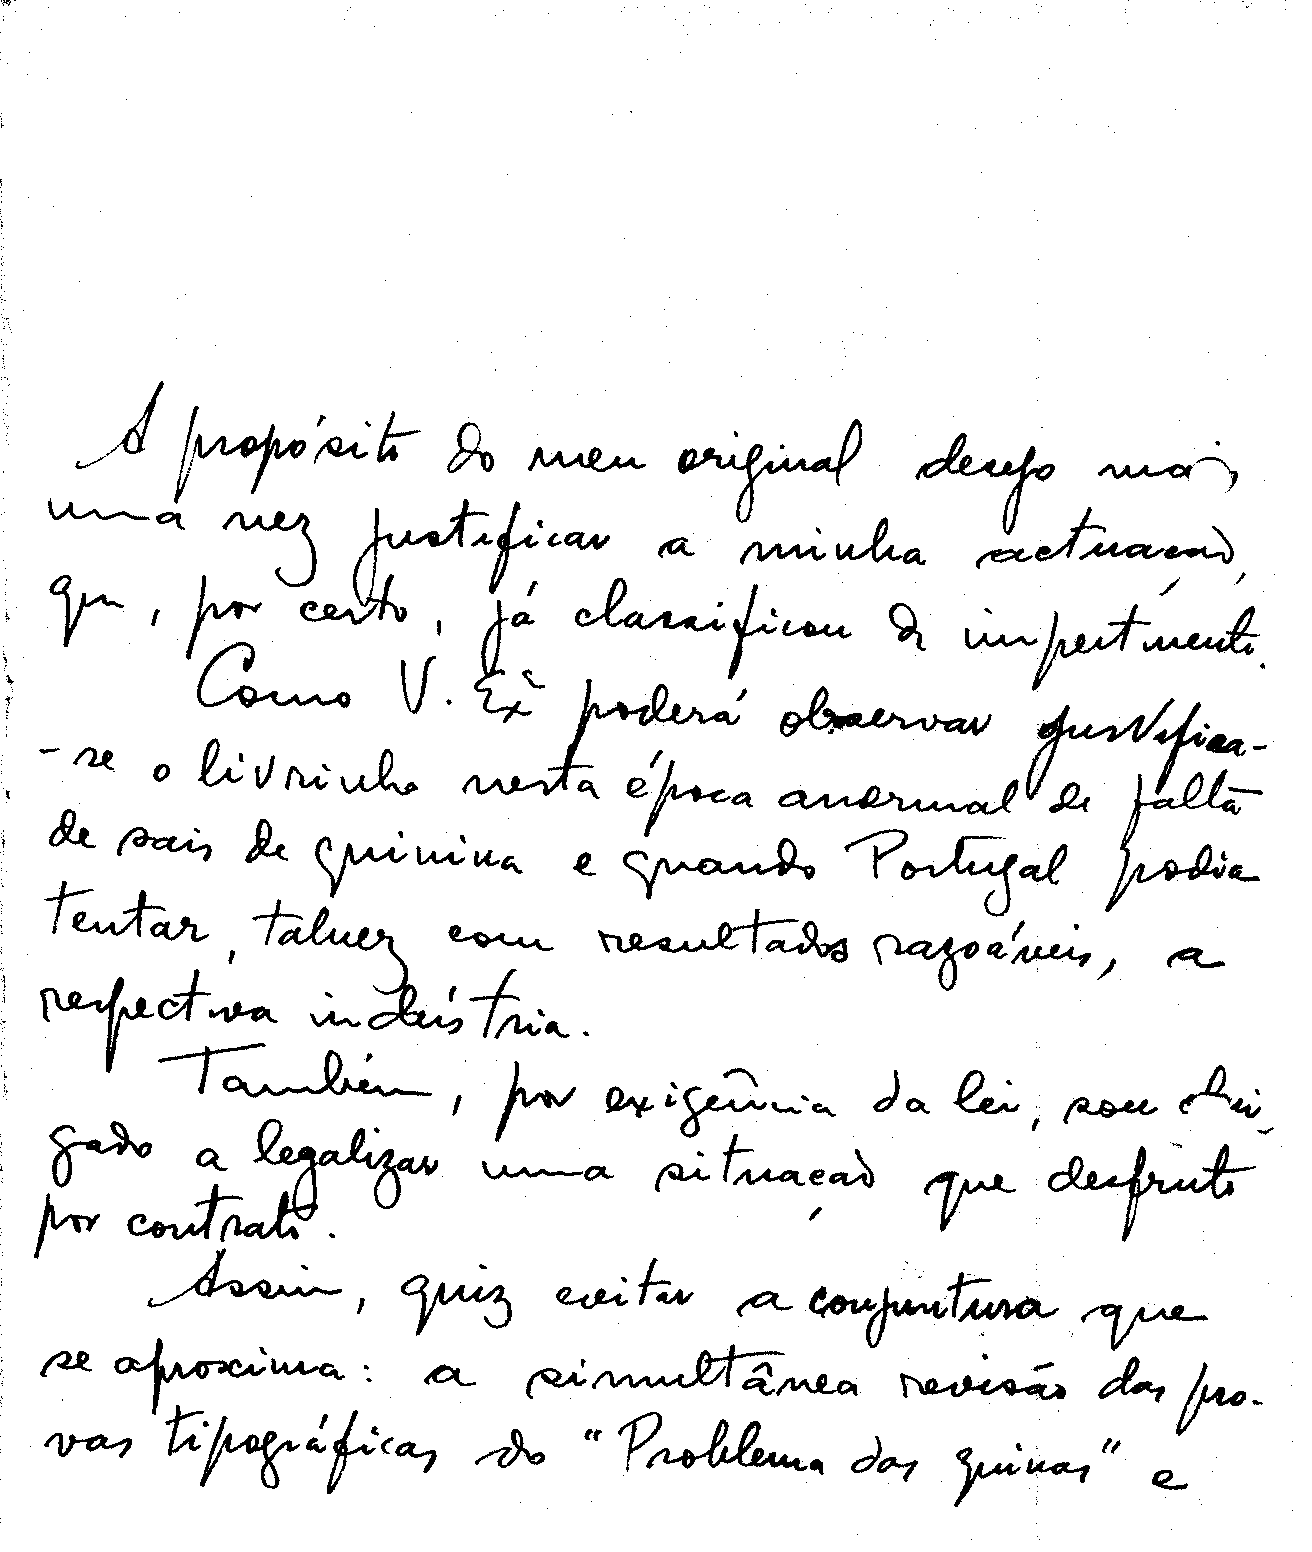 A propósito do meu original desejo mais
uma vez justificar a minha actuação,
que, por certo, já classificou de impertinente.
Como V. Exª poderá observar justifica-
-se o livrinho nesta época anormal de falta
de sais de quinina e quando Portugal podia
tentar, talvez com resultados razoáveis, a
respectiva indústria.
Também, por exigência da lei, sou obri-
gado a legalizar uma situação que desfruto
por contrato.
Assim, quiz evitar a conjuntura que
se aproxima: a simultânea revisão das pro-
vas tipográficas do "Problema das quinas" e